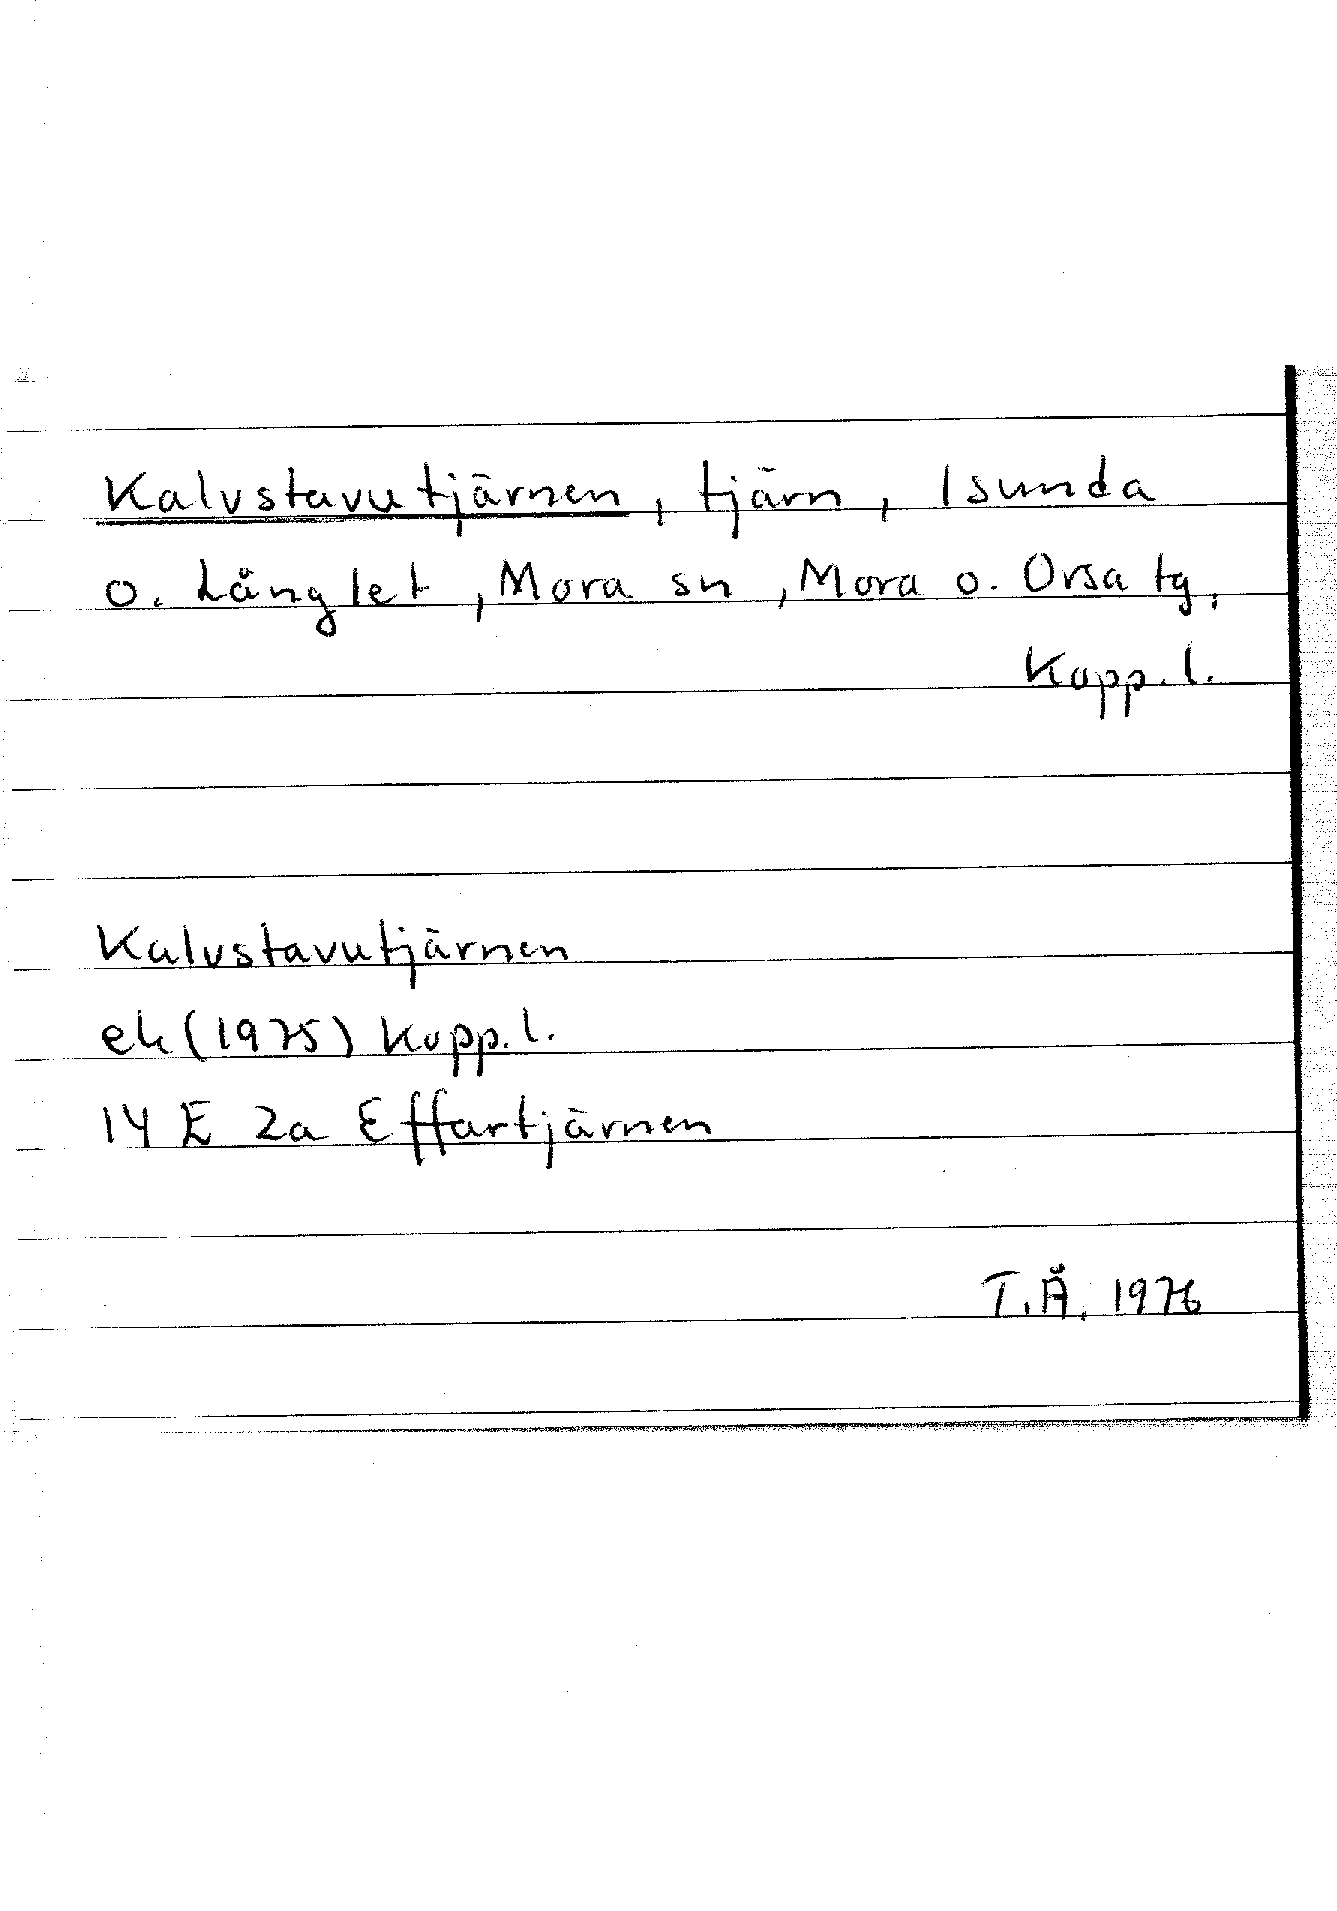 Kalvstavutjärnen, tjärn, Isunda
o. Långlet, Mora sn, Mora o. Orsa tg,
Kopp.l.
Kalvstavutjärnen
ek (1975) Kopp.l.
14 E 2a Effartjärnen
T.Å. 1976